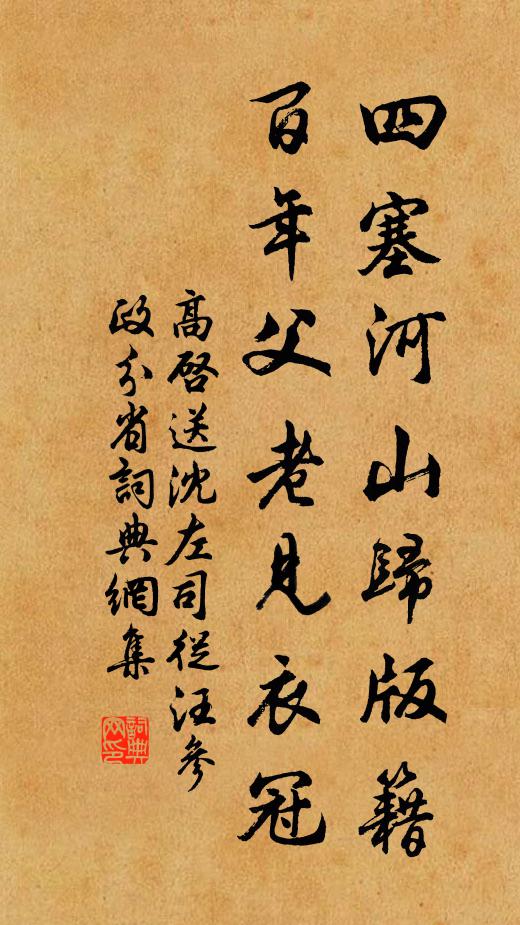 四塞河山歸版籍
百年父老見衣冠
高啓送沈左司從汪參
政分省詞典網集
詞典網印